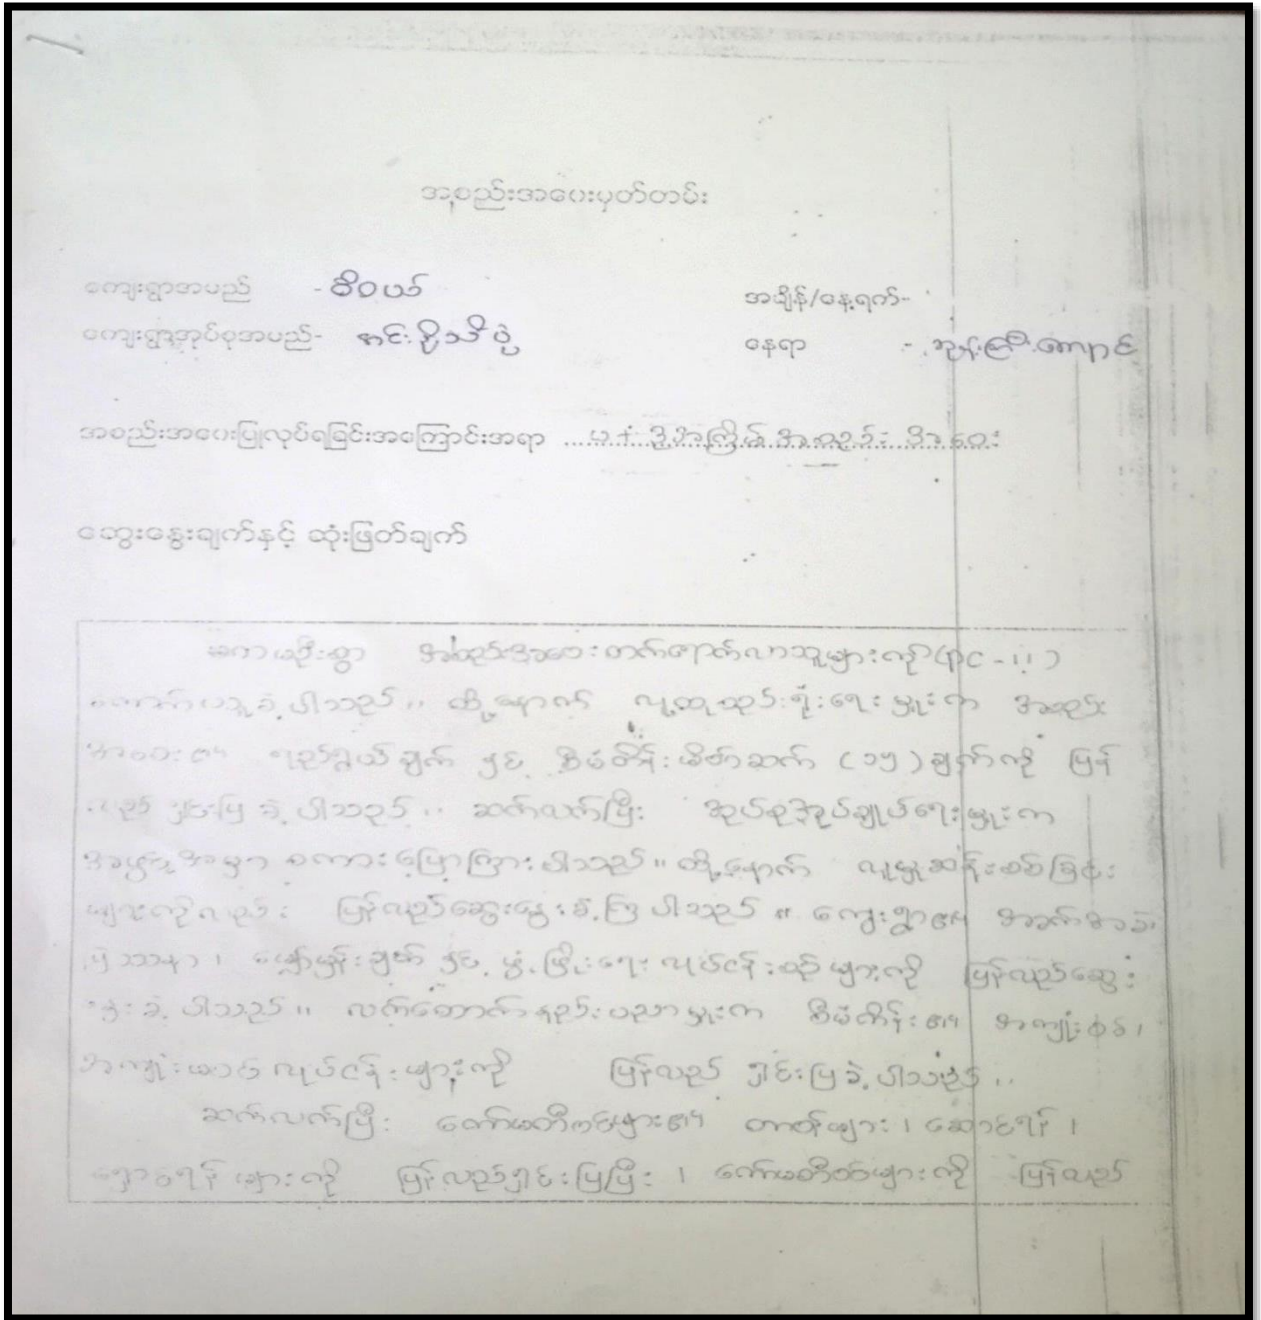 အစည်းအဝေးမှတ်တမ်း
ကျေးရွာအမည် - စီဝယ် အချိန်/နေ့ရက်-
ကျေးရွာအုပ်စုအမည်- နေရာ - ဘုန်းကြီးကျောင်း
အစည်းအဝေးပြုလုပ်ရခြင်းအကြောင်းအရာ ...ပထမအကြိမ် အစည်းအဝေး
ဆွေးနွေးချက်နှင့် ဆုံးဖြတ်ချက်
ပထမဦးစွာ အစည်းအဝေးတက်ရောက်လာသူများကို
ကောက်ယူခဲ့ပါသည်။ ထို့နောက် လူထုစည်းရုံးရေးမှူးက အစည်း
အဝေး၏ ရည်ရွယ်ချက် နှင့် စီမံကိန်းမိတ်ဆက် (၁၅) ချက်ကို ပြန်
လည် ရှင်းပြခဲ့ပါသည်။ ဆက်လက်ပြီး အုပ်စုအုပ်ချုပ်ရေးမှူးက
အဖွင့်အမှာ စကားပြောကြားပါသည်။ ထို့နောက် လူမှုဆန်းစစ်ခြင်း
များကိုလည်း ပြန်လည်ဆွေးနွေးခဲ့ကြပါသည်။ ကျေးရွာ၏ အခက်အခဲ၊
ပြဿနာ၊ မျှော်မှန်းချက် နှင့် ဖွံ့ဖြိုးရေး လုပ်ငန်းစဉ်များကို ပြန်လည်ဆွေး
နွေးခဲ့ပါသည်။ လက်ထောက်နည်းပညာမှူးက စီမံကိန်း၏ အကျုံးဝင်၊
အကျုံးမဝင် လုပ်ငန်းများကို ပြန်လည် ရှင်းပြခဲ့ပါသည်။
ဆက်လက်ပြီး ကော်မတီဝင်များ၏ တာဝန်များ၊ ဆောင်ရန်၊
ရှောင်ရန်များကို ပြန်လည်ရှင်းပြပြီး၊ ကော်မတီဝင်များကို ပြန်လည်